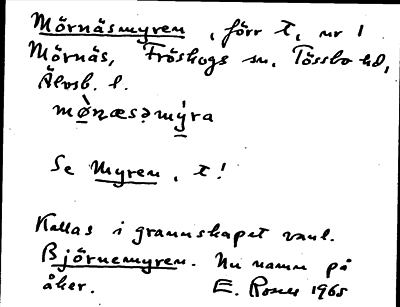 Mörnäsmyren, förr t, nr 1
Mörnäs, Fröskogs sn, Tössbo hd,
Älvsb. l.
mø̀ɳæsəmýra
Se Myren, t!
Kallas i grannskapet vanl.
Björnemyren. Nu namn på
åker. E. Rosén 1965